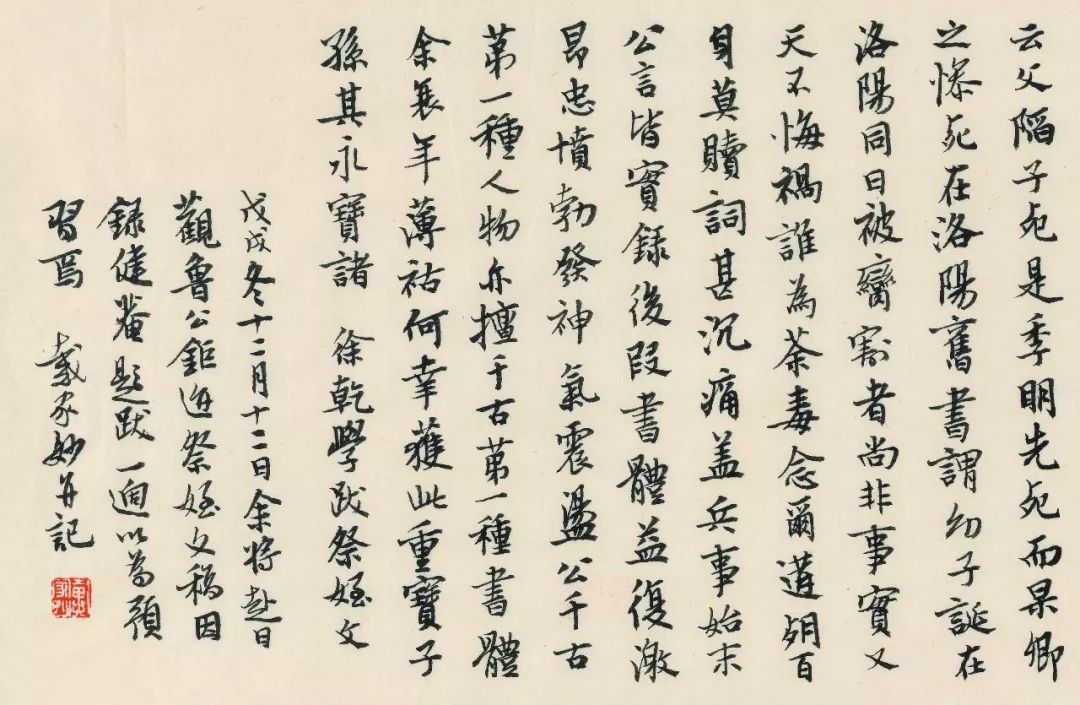 云父陷子死是季明先死而杲卿
之慘死在洛陽舊書謂幼子誕在
洛陽同日被臠割者尚非事實又
天不悔禍誰為荼毒念爾遘殃百
身莫贖詞甚沉痛蓋兵事始末
公言皆實錄後段書體益復激
昂忠憤勃發神氣震盪公千古
第一種人物亦擅千古第一種書體
余衰年薄祜何幸獲此重寶子
孫其永寶諸 徐乾學跋祭姪文
戊戌冬十二月十二日余将赴日
觀魯公鉅迹祭姪文稿因
錄健菴題跋一通以為預
習焉 戴家妙并記